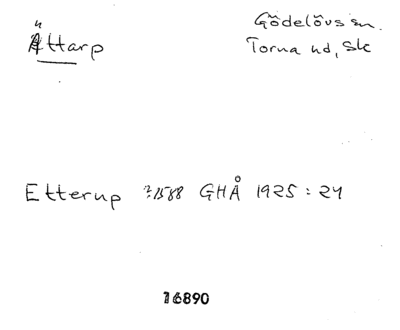 Ättarp
Gödelövs sn.
Torna hd, Sk
Etterup ?1588 GHÅ 1925:24
16890